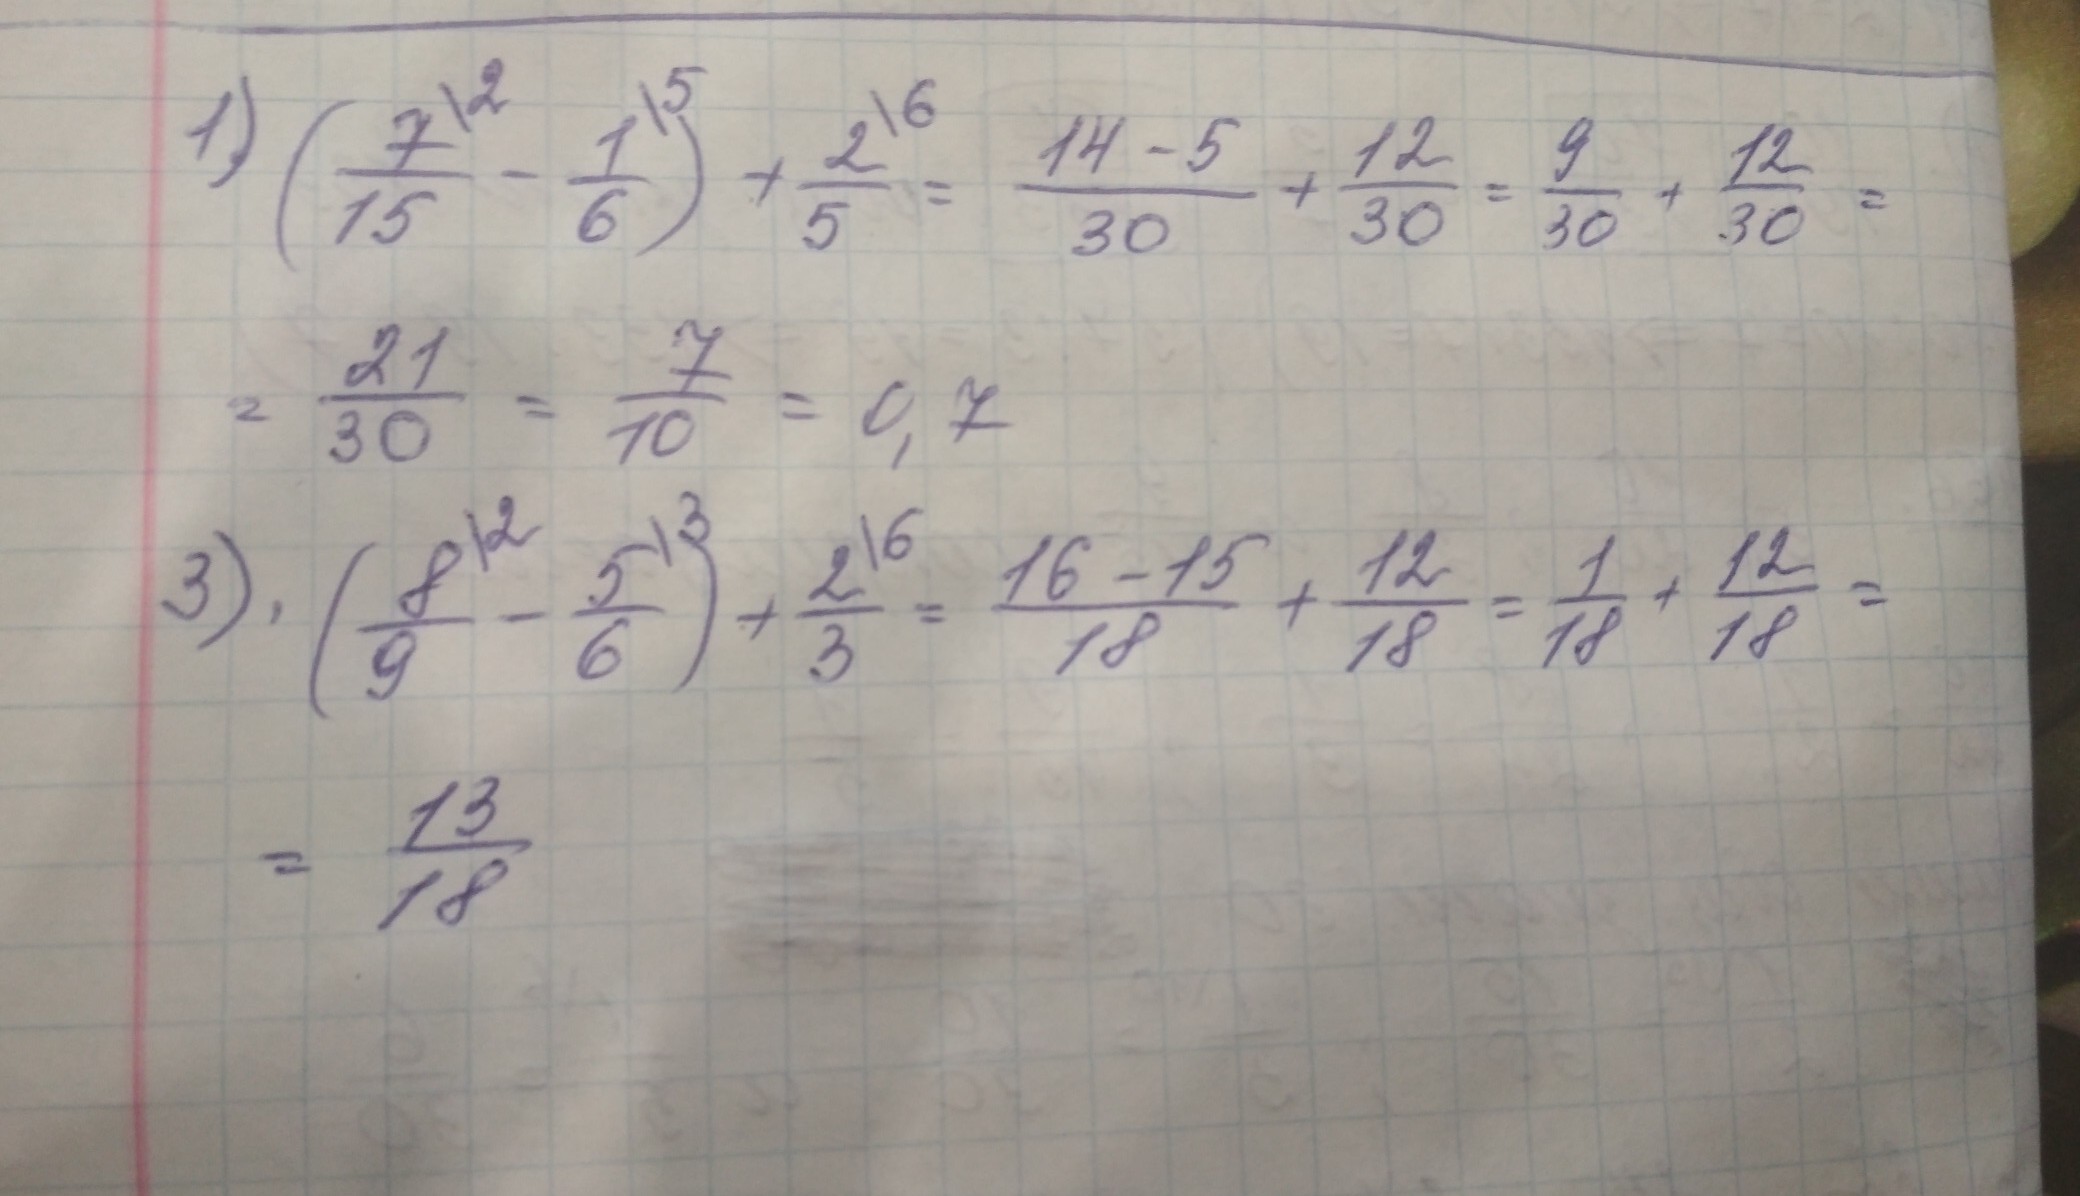 1) (7\2/15 - 1\5/6) + 2\6/5 = 14-5/30 + 12/30 = 9/30 + 12/30 =
= 21/30 = 7/10 = 0,7
3). (8\2/9 - 5\3/6) + 2\6/3 = 16-15/18 + 12/18 = 1/18 + 12/18 =
= 13/18